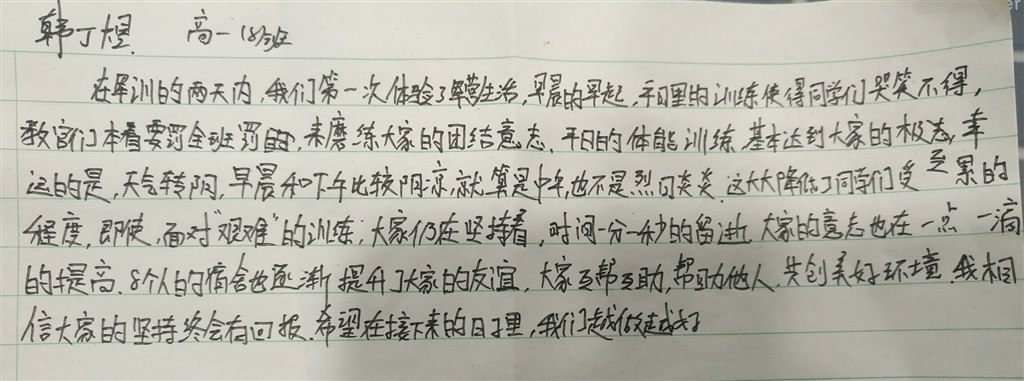 韩丁煜 高一18班
在军训的两天内,我们第一次体验了军营生活,早晨的早起,平日里的训练使得同学们哭笑不得,
教官们本着要罚全班罚的,来磨练大家的团结意志,平日的体能训练,基本达到大家的极点,幸
运的是,天气转阴,早晨和下午比较阴凉,就算是中午,也不是烈日炎炎,这大大降低了同学们受至累的
程度,即使,面对"艰难"的训练,大家仍在坚持着,时间一分一秒的留逝,大家的意志也在一点一滴
的提高.8个人的宿舍也逐渐提升了大家的友谊,大家互帮互助,帮助他人,共创美好环境.我相
信大家的坚持终会有回报.希望在接下来的日子里,我们越做越好